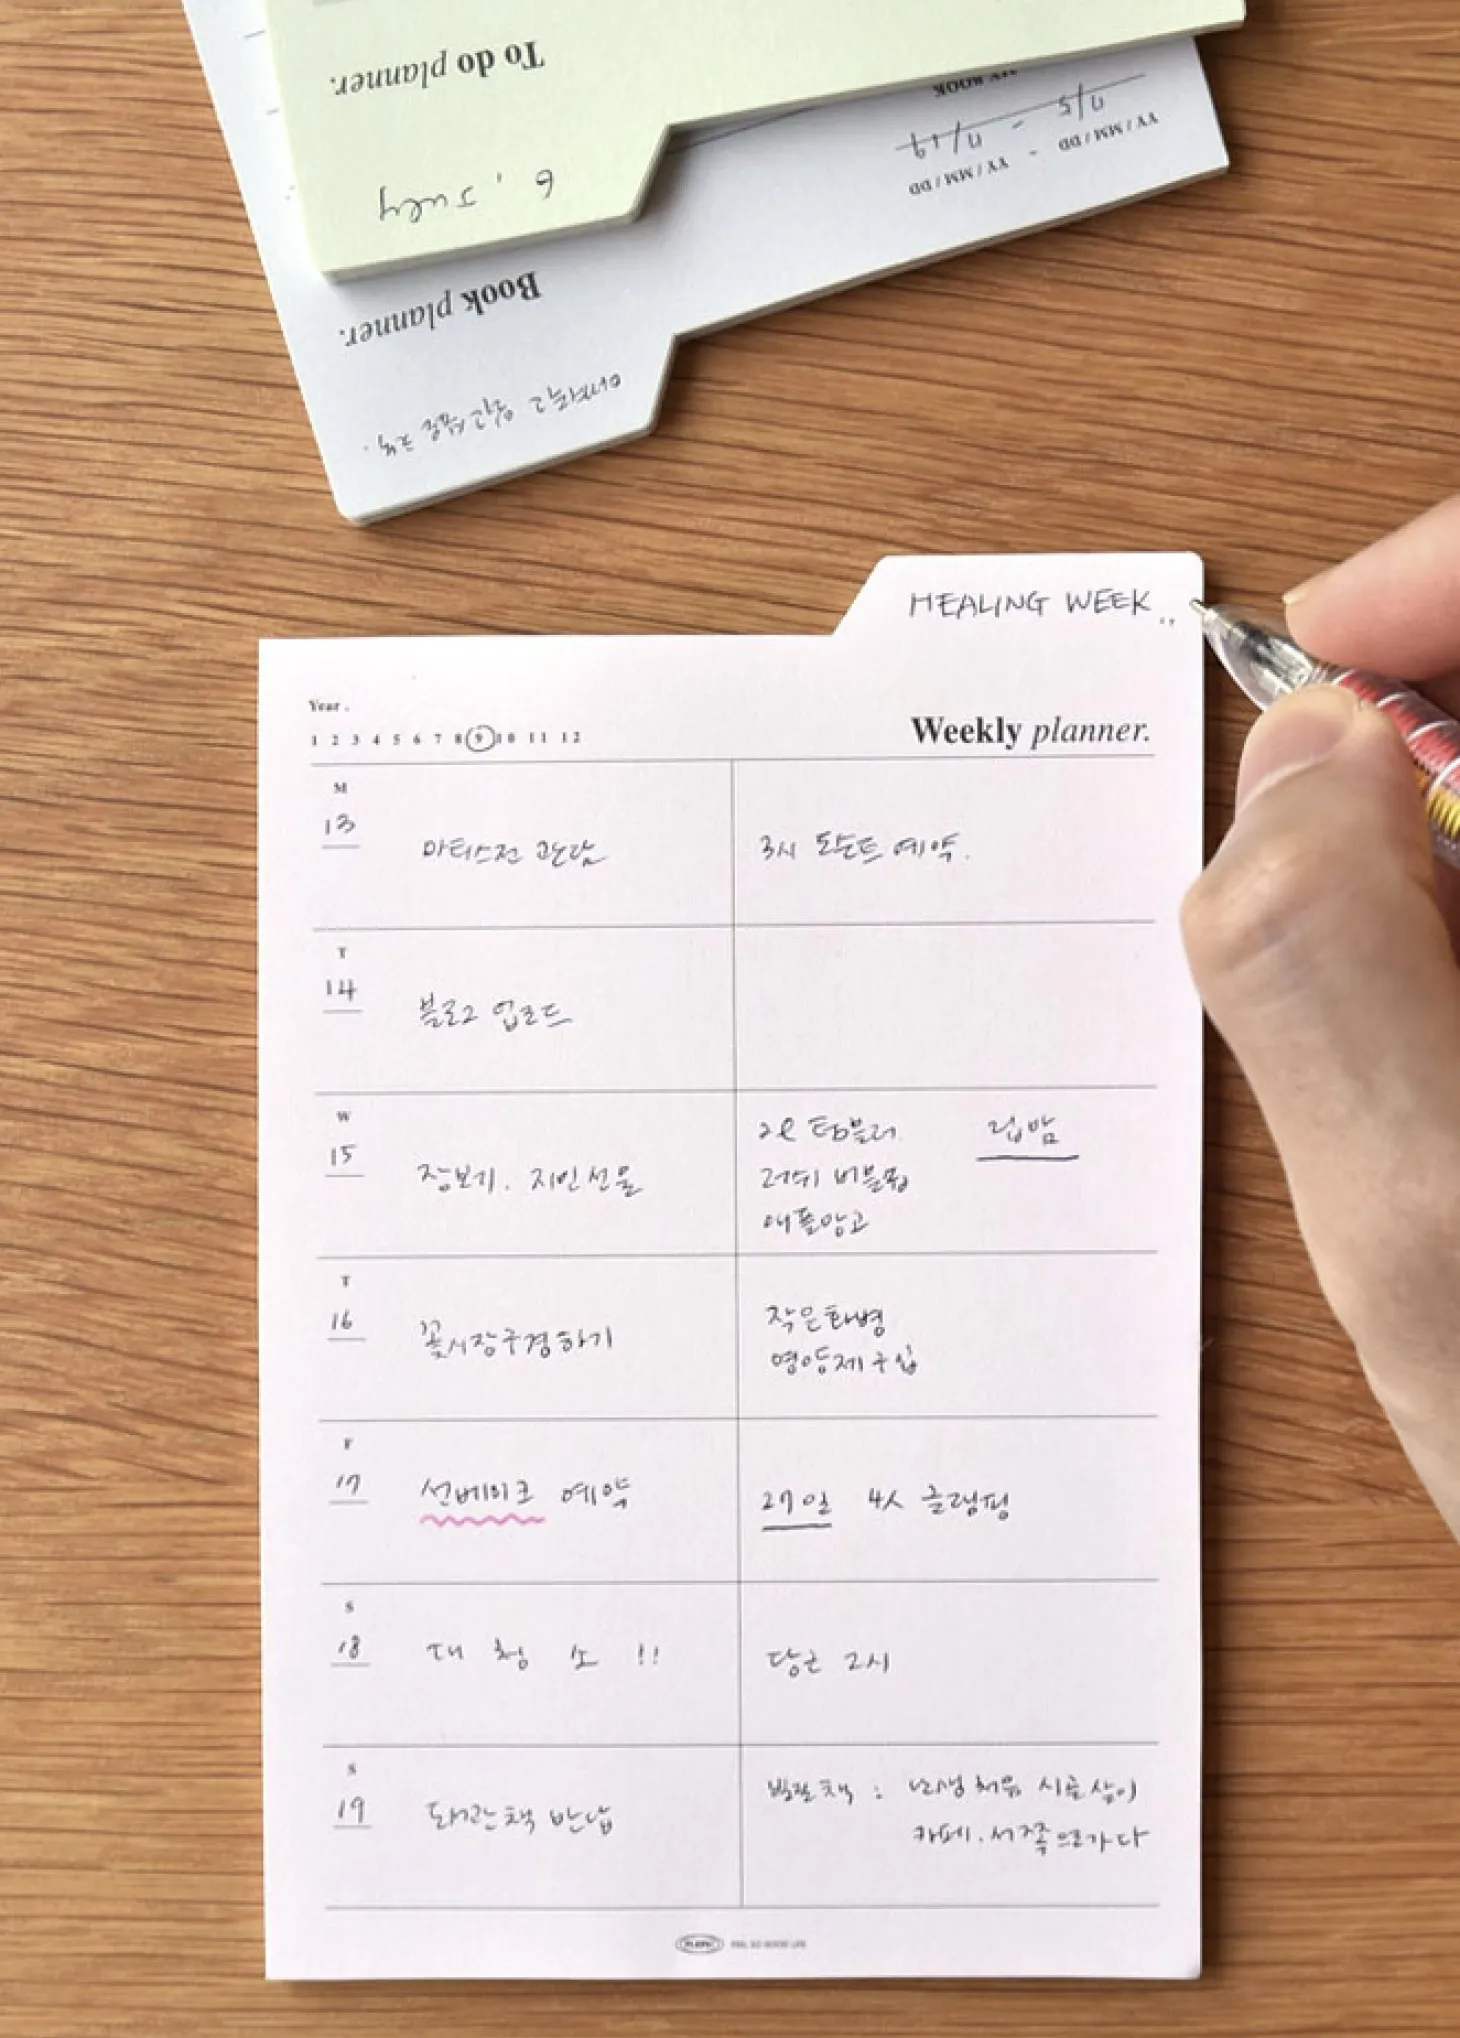 To do planner.
6, July
MY BOOK
11/5 - 11/19
YY / MM / DD - YY / MM / DD
Book planner.
HEALING WEEK..
Year.
1 2 3 4 5 6 7 8 9 10 11 12
Weekly planner.
M
13
마티스전 관람
3시 도슨트 예약.
T
14
블로그 업로드
W
15
장보기. 지인선물
2l 텀블러
립밤
러쉬 버블밤
애플망고
T
16
꽃시장구경하기
작은화병
영양제구입
F
17
선베이크 예약
27일 4人 글램핑
S
18
대 청 소 !!
당근 2시
S
19
도서관책 반납
빌릴책 : 난생처음 시골살이
카페. 서쪽으로가다
FEEL SO GOOD LIFE